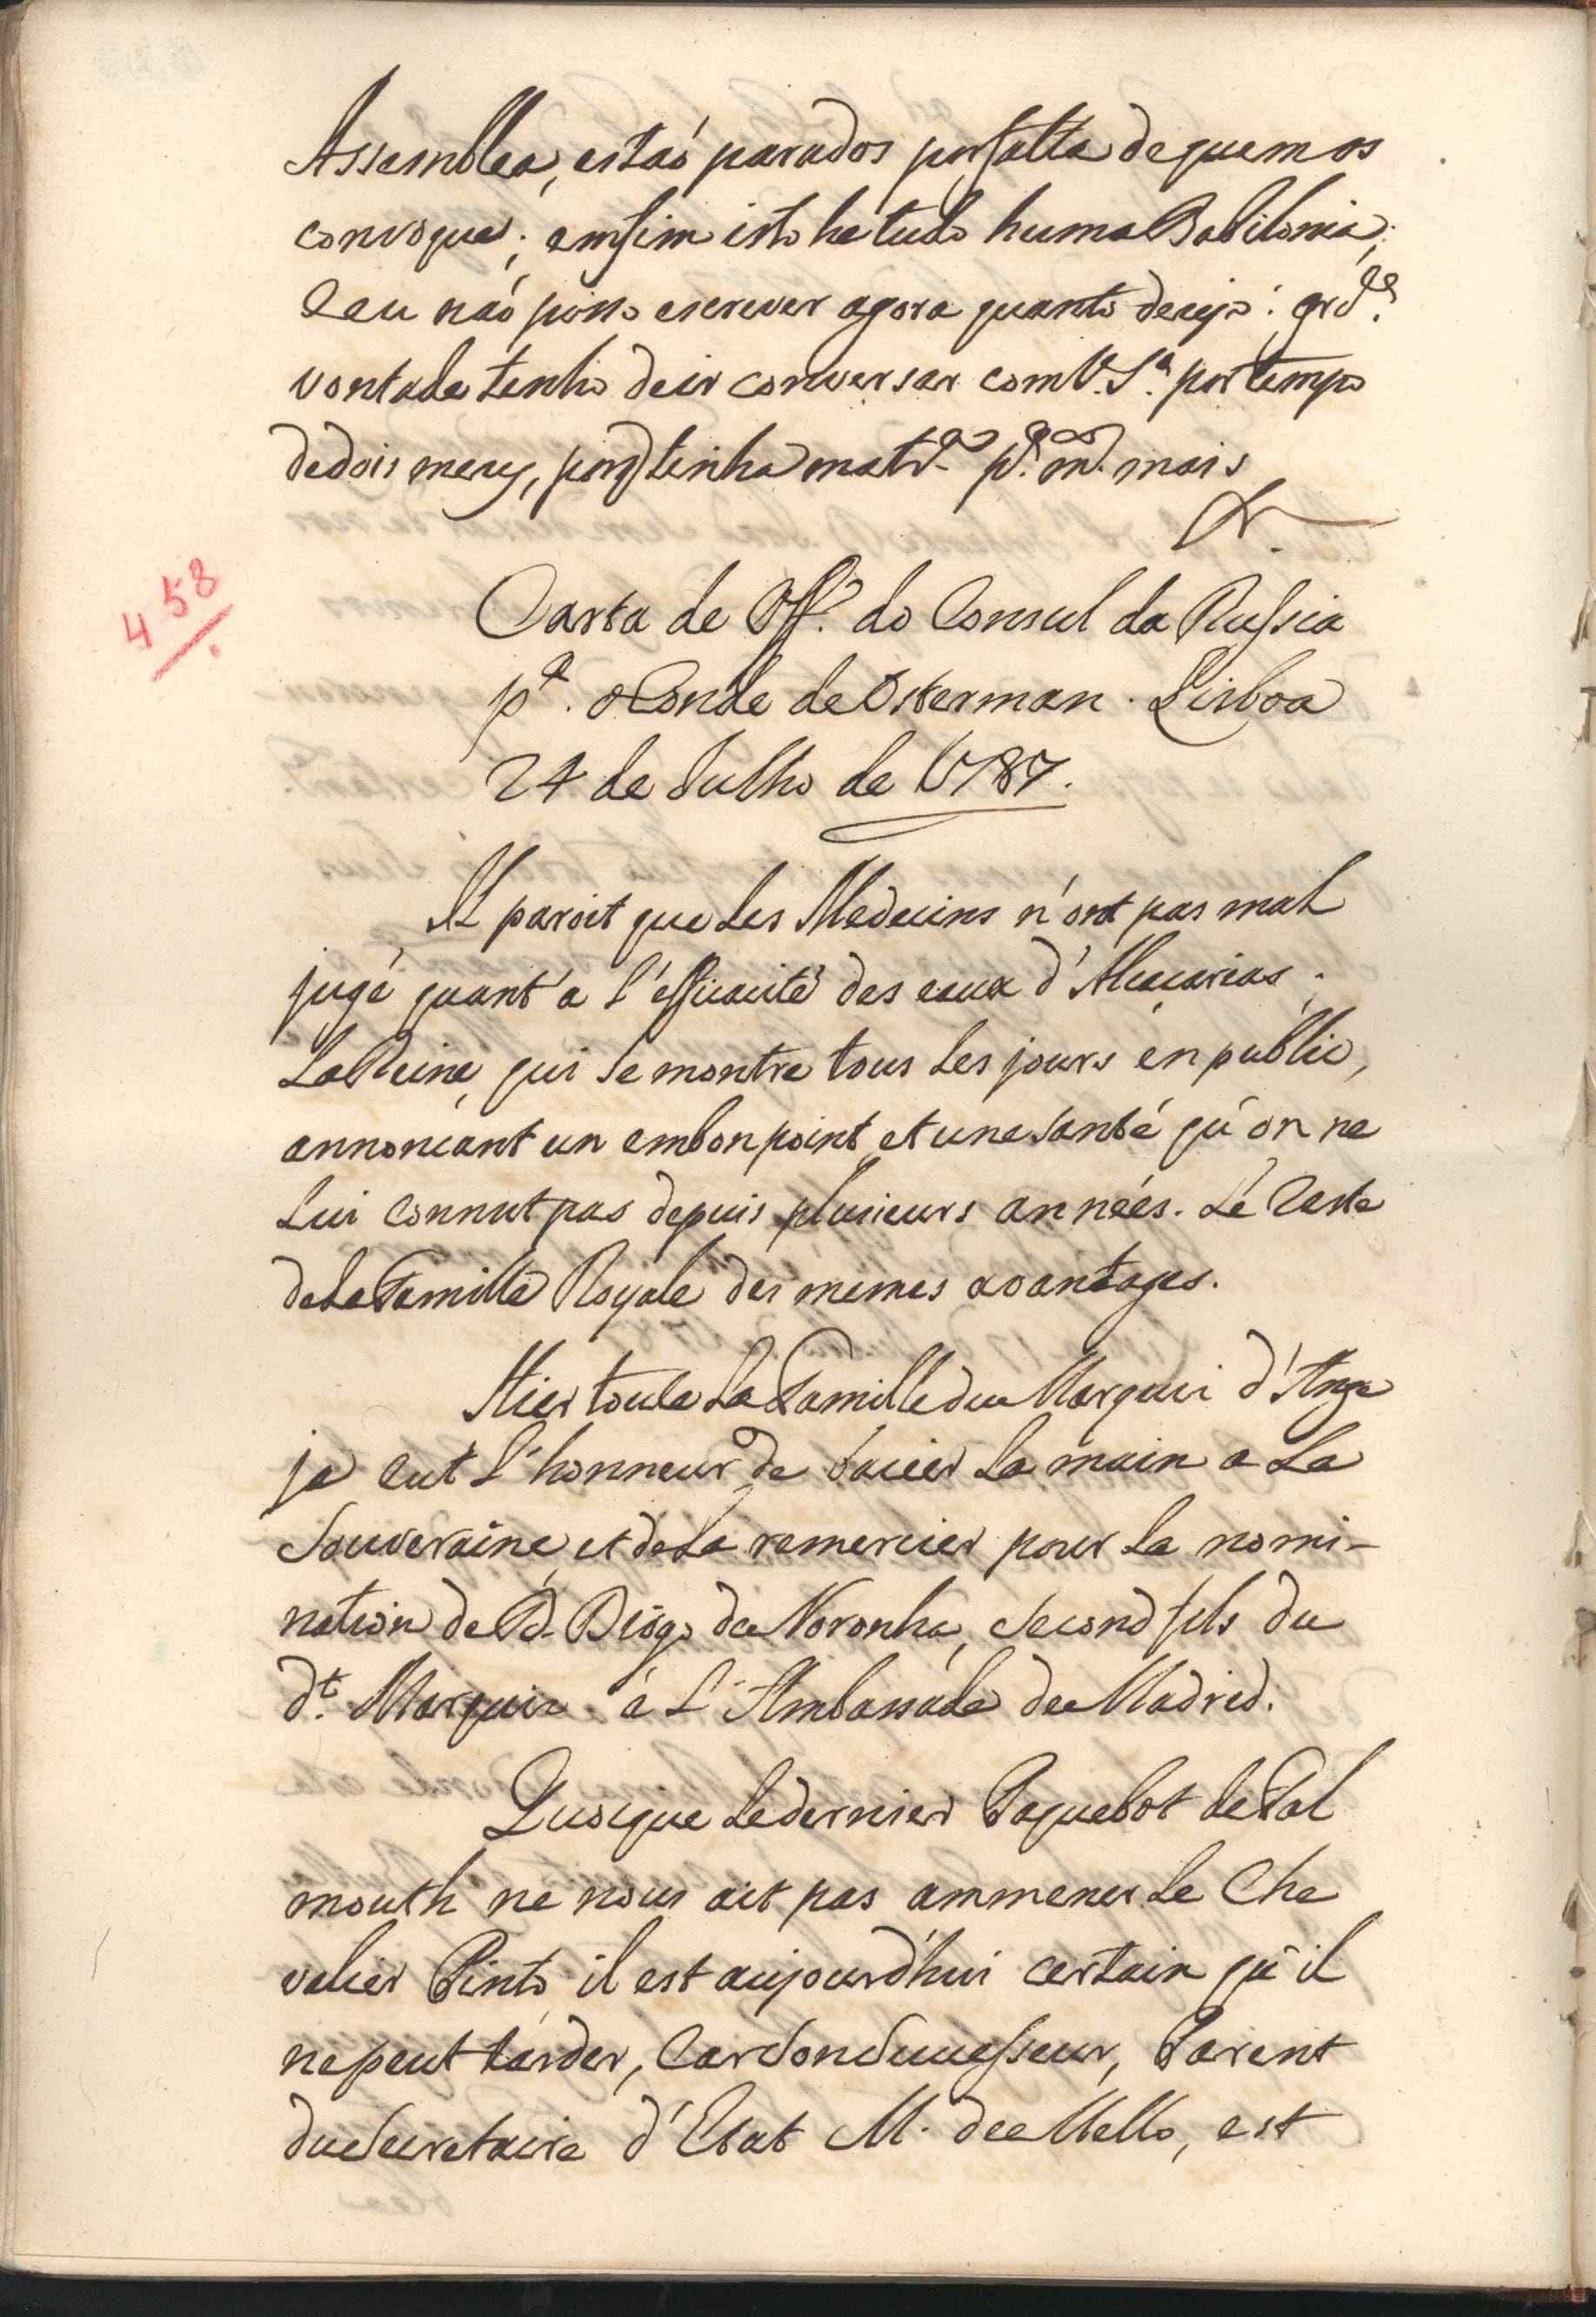 Assemblea, estaó parados por falta de quem os
convoque; emfim isto he tudo huma Babilonia,
e eu naó posso escrever agora quanto dezejo: grd.e
vontade tenho de ir conversar com V. S.a por tempo
de dois mezes, porq tinha mat.a p.a m.to mais
458
Carta de Off.o do Consul da Russia
p.a o Conde de Osterman. Lisboa
24 de Julho de 1787.
Il paroit que Les Medecins n'ont pas mal
jugé quant'a l'éfficacité des eaux d'Alcaçarias.
La Reine, qui se montre tous Les jours en public,
annonçant un embonpoint et une santé qu'on ne
Lui connut pas depuis plusieurs années. Le Reste
de La Famille Royale des memes avantages.
Hier toute La Famille du Marquis d'Ange
ja eut L'honneur de baicer La main a La
Souveraine, et de La remercier pour La nomi-
nation de D. Diogo de Noronha, Second fils du
dt. Marquis à L'Ambassade de Madrid.
Quoique Le dernier Paquebot de Fal
mouth ne nous ait pas ammener Le Che
valier Pinto, il est aujourd'hui certain qu'il
ne peut tarder, Car Son Successeur, Parent
du Secretaire d'Etat M. de Mello, est